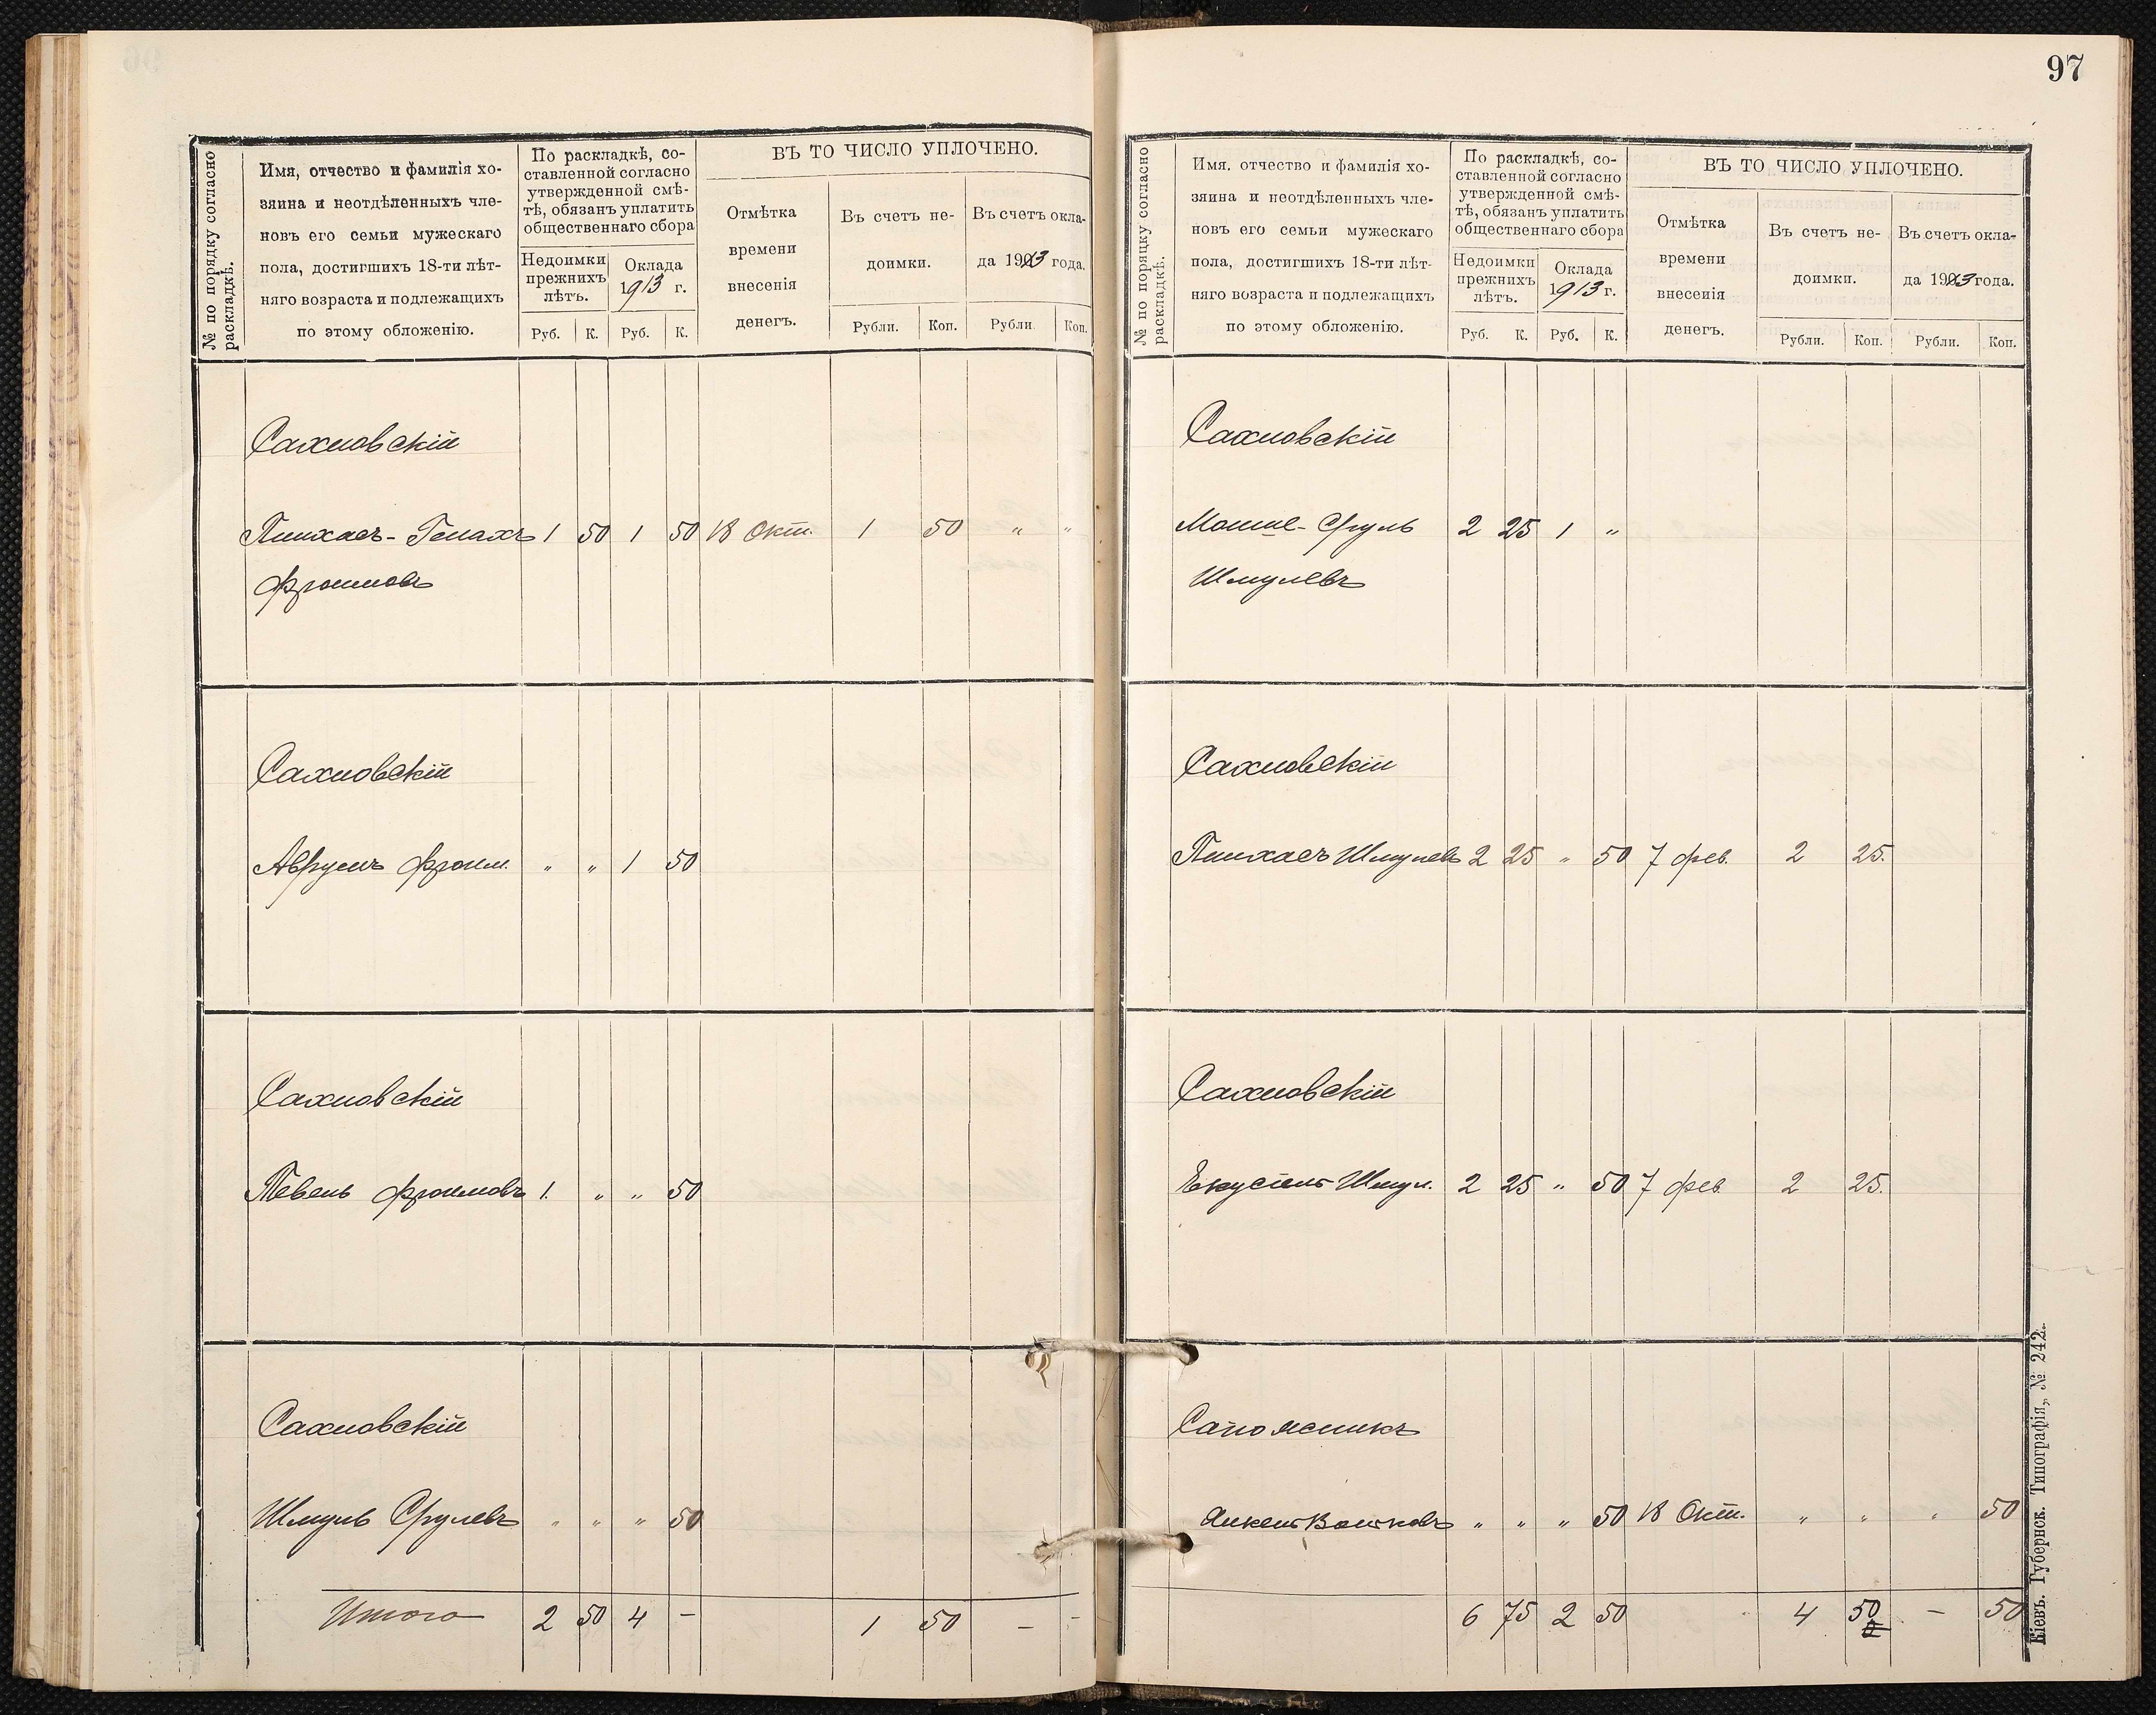 97
№ по порядку согласно раскладкѣ.
Имя, отчество и фамилія хо-
зяина и неотдѣленныхъ чле-
новъ его семьи мужескаго
пола, достигшихъ 18-ти лѣт-
няго возраста и подлежащихъ
по этому обложенію.
По раскладкѣ, со-
ставленной согласно
утвержденной смѣ-
тѣ, обязанъ уплатить
общественнаго сбора
Недоимки прежнихъ лѣтъ.
Оклада 1913 г.
Руб. К. Руб. К.
ВЪ ТО ЧИСЛО УПЛОЧЕНО.
Отмѣтка
времени
внесенія
денегъ.
Въ счетъ не-
доимки.
Въ счетъ окла-
да 1913 года.
Рубли. Коп. Рубли. Коп.
Сахновскій
Пинхасъ-Генахъ 1 50 1 50 18 Окт. 1 50 " "
Фроимовъ
Сахновскій
Аврумъ Фроим. " " 1 50
Сахновскій
Тевель Фроимовъ 1. " " 50
Сахновскій
Шмуль Срулевъ " " " 50
Итого 2 50 4 - 1 50 - -
№ по порядку согласно раскладкѣ.
Имя, отчество и фамилія хо-
зяина и неотдѣленныхъ чле-
новъ его семьи мужескаго
пола, достигшихъ 18-ти лѣт-
няго возраста и подлежащихъ
по этому обложенію.
По раскладкѣ, со-
ставленной согласно
утвержденной смѣ-
тѣ, обязанъ уплатить
общественнаго сбора
Недоимки прежнихъ лѣтъ.
Оклада 1913 г.
Руб. К. Руб. К.
ВЪ ТО ЧИСЛО УПЛОЧЕНО.
Отмѣтка
времени
внесенія
денегъ.
Въ счетъ не-
доимки.
Въ счетъ окла-
да 1913 года.
Рубли. Коп. Рубли. Коп.
Сахновскій
Мошко-Сруль 2 25 1 "
Шмулевъ
Сахновскій
Пинхасъ Шмулевъ 2 25 " 50 7 фев. 2 25.
Сахновскій
Екусіель Шмул. 2 25 " 50 7 фев. 2 25.
Сапожникъ
Волковъ " " " 50 18 Окт. " " " 50
6 75 2 50 4 50 - 50
Кіевъ. Губернск. Типографія, № 242.